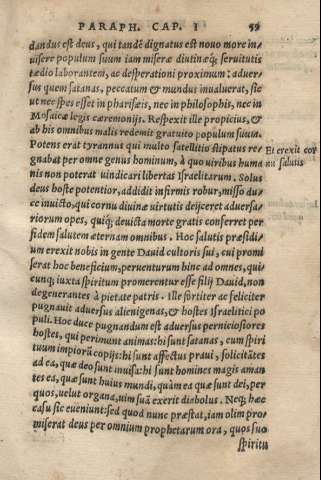 PARAPH. CAP. I 59
dandus est deus, qui tandẽ dignatus est nouo more in-
uisere populum suum iam miseræ diutinæq; seruitutis
tædio laborantem, ac desperationi proximum: aduer-
sus quem satanas, peccatum & mundus inualuerat, sic
ut nec spes esset in pharisæis, nec in philosophis, nec in
Mosaicæ legis cæremonijs. Respexit ille propicius, &
ab his omnibus malis redemit gratuito populum suum.
Potens erat tyrannus qui multo satellitio stipatus re-
gnabat per omne genus hominum, à quo uiribus huma
nis non poterat uindicari libertas Israelitarum. Solus
deus hoste potentior, addidit infirmis robur, misso du-
ce inuicto, qui cornu diuinæ uirtutis deijceret aduersa-
riorum opes, quiq; deuicta morte gratis conferret per
fidem salutem æternam omnibus. Hoc salutis præsidi-
um erexit nobis in gente Dauid cultoris sui, cui promi
serat hoc beneficium, peruenturum hinc ad omnes, qui
cunq; iuxta spiritum promerentur esse filij Dauid, non
degenerantes à pietate patris. Ille fortiter ac feliciter
pugnauit aduersus alienigenas, & hostes Israelitici po
puli. Hoc duce pugnandum est aduersus perniciosiores
hostes, qui perimunt animas: hi sunt satanas, cum spiri
tuum impiorũ copijs: hi sunt affectus praui, solicitãtes
ad ea, quæ deo sunt inuisa: hi sunt homines magis aman
tes ea, quæ sunt huius mundi, quàm ea quæ sunt dei, per
quos, uelut organa, uim suã exerit diabolus. Neq; hæc
casu sic eueniunt: sed quod nunc præstat, iam olim pro-
miserat deus per omnium prophetarum ora, quos suo
spiritu
Et erexit cor
nu salutis